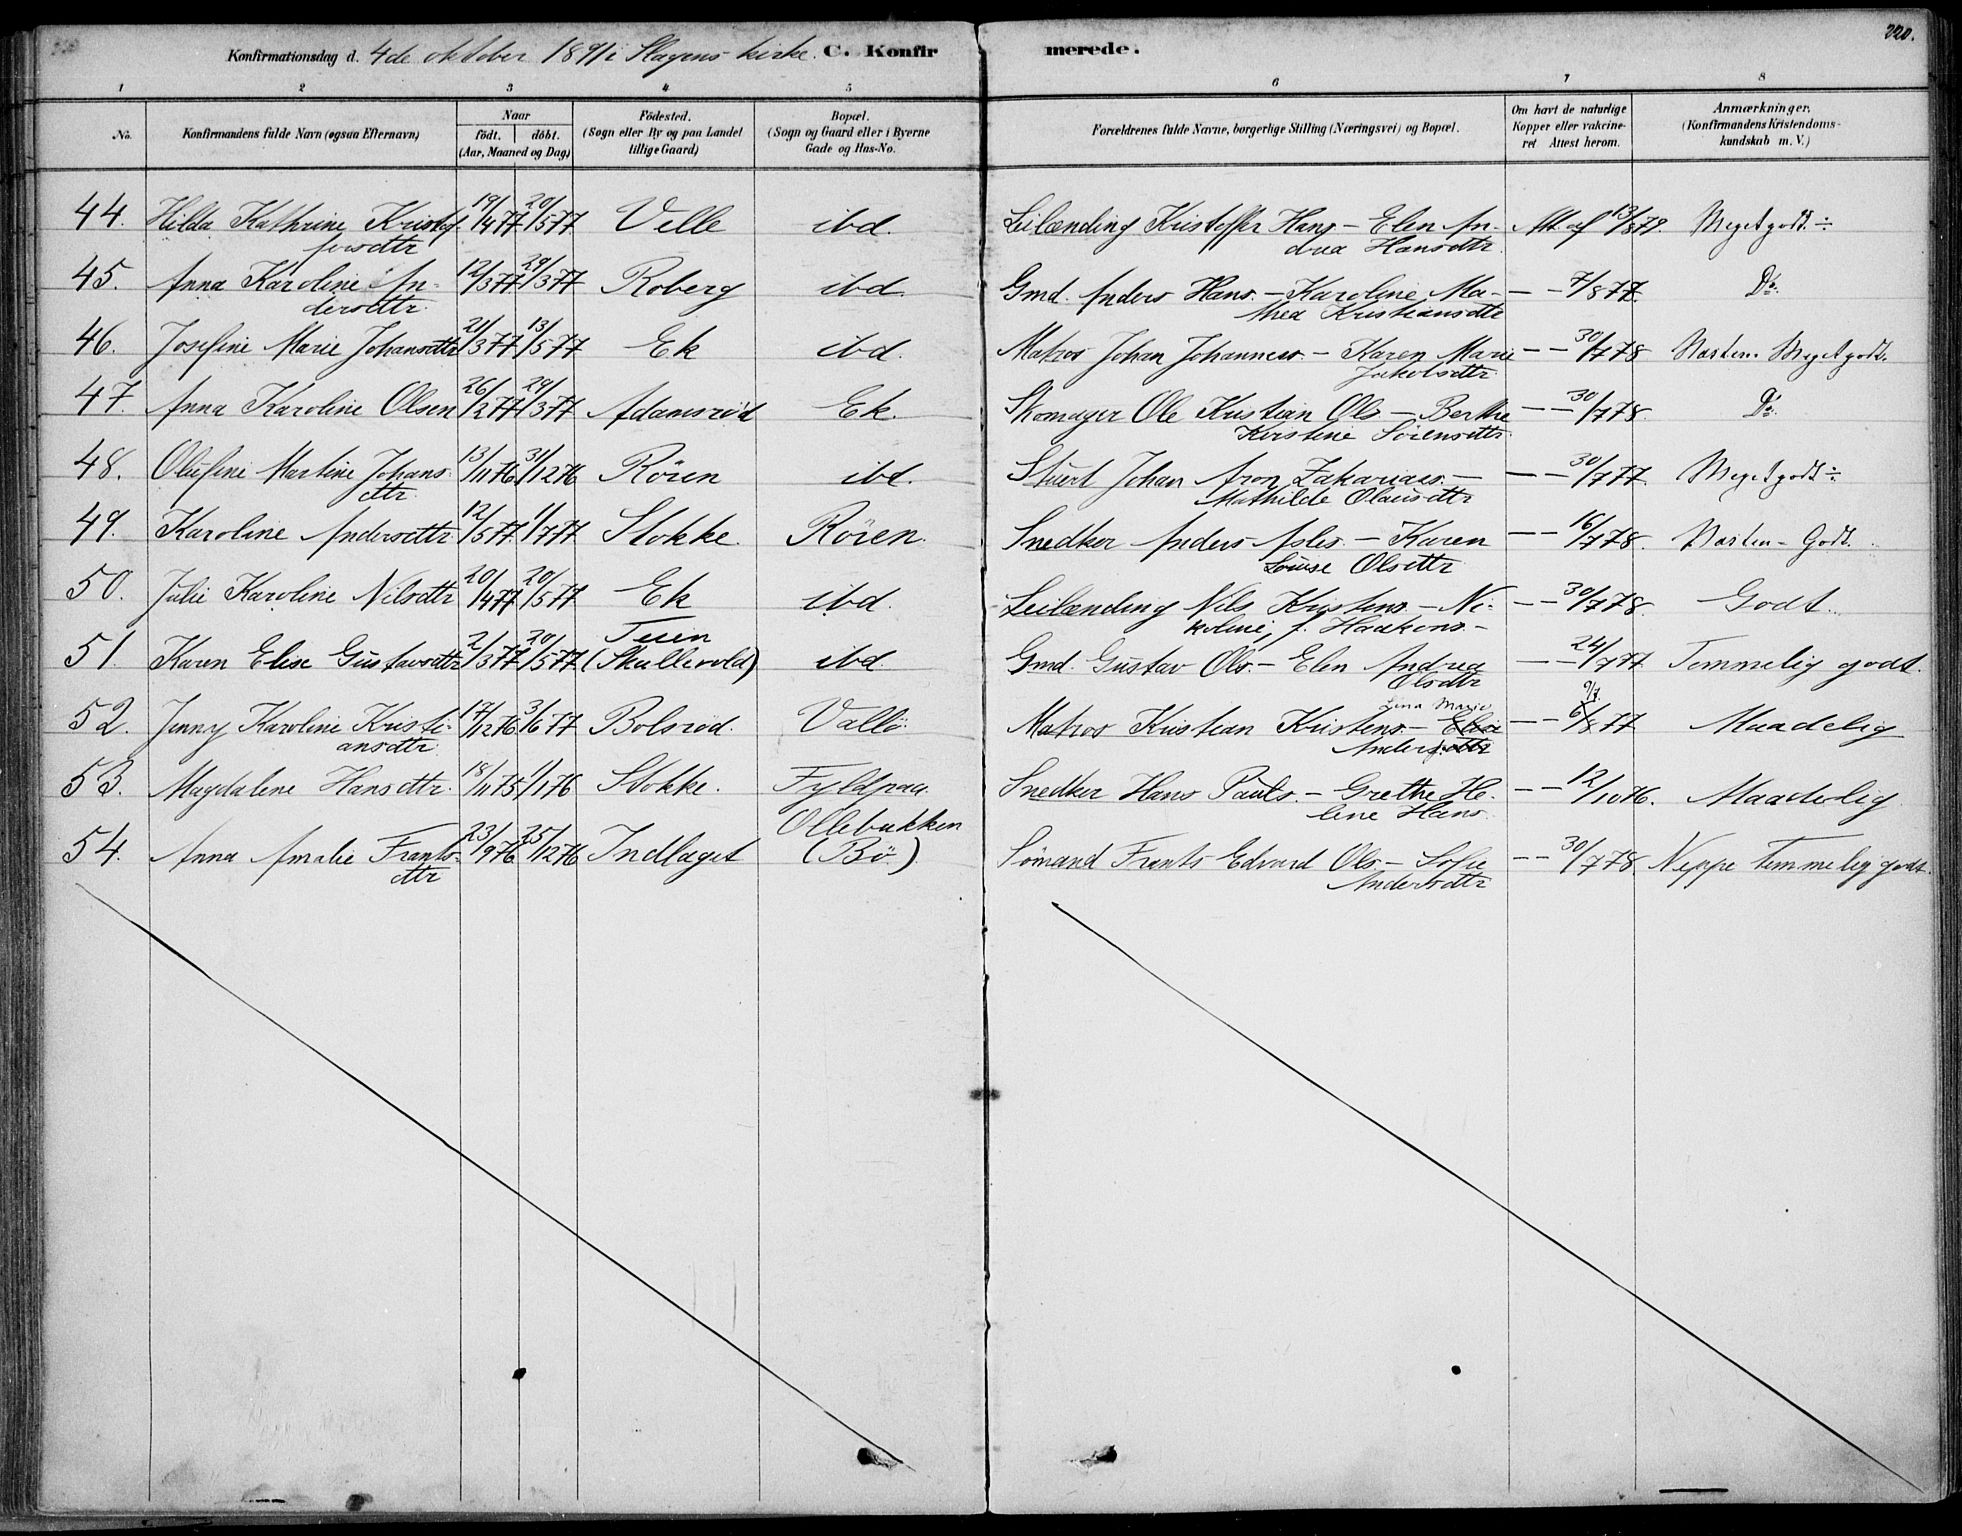 220.
Konfirmationsdag d. 4de oktober 1891 i Slagens kirke. C. Konfirmerede.
1 2 3 4 5 6 7 8
No. Konfirmandens fulde Navn (ogsaa Efternavn) Naar født. døbt. (Aar, Maaned og Dag) Fødested. (Sogn eller By og paa Landet tillige Gaard) Bopæl. (Sogn og Gaard eller i Byerne Gade og Hus-No. Forældrenes fulde Navne, borgerlige Stilling (Næringsvei) og Bopæl. Om havt de naturlige Kopper eller vakcineret Attest herom. Anmærkninger. (Konfirmandens Kristendomskundskab m. V.)
44. Hilda Kathrine Kristof- 19/4 77 20/5 77 Velle ibd. Leilænding Kristoffer Hans. - Elen An- Att. af 13/8 79. Meget godt ÷
fersdtr drea Hansdtr.
45. Anna Karoline An- 12/3 77 29/3 77 Roberg ibd. Gmd. Anders Hans. - Karoline Ma- — — 7/8 77. Do.
dersdtr. thea Kristiansdtr
46. Josefine Marie Johansdtr 21/3 77 13/5 77 Ek ibd. Matros Johan Johanness. - Karen Marie — — 30/7 78 Næsten Meget godt.
Jakobsdtr.
47. Anna Karoline Olsen 26/2 77 29/3 77 Adamsrød Ek. Skomager Ole Kristian Ols - Berthe — — 30/7 78. Do.
Kristine Sørensdtr.
48. Olufine Martine Johans- 13/11 76 31/12 76 Røren ibd. Stuert Johan Aron Zakariass. - — — 30/7 77. Meget godt ÷
dtr. Mathilde Olausdtr
49. Karoline Andersdtr. 12/5 77. 1/7 77 Stokke. Røren. Snedker Anders Asles. - Karen — — 16/7 78. Næsten - Godt.
Louise Olsdtr
50. Julie Karoline Nilsdtr 20/4 77 20/5 77 Ek ibd. Leilænding Nils Kristens. - Ni- — — 30/7 78. Godt.
koline, f. Haakons. -
51. Karen Elise Gustavsdtr 2/3 77 20/5 77 Tuen (Skallevold) ibd. Gmd. Gustav Ols. - Elen Andrea — — 24/7 77 Temmelig godt.
Olsdtr
52. Jenny Karoline Kristi- 17/12 76 3/6 77 Bolsrød. Vallø. Matros Kristian Kristens. - Elise Lina Marie — — 6/8 77 Maadelig
ansdtr. Andersdtr
53. Magdalene Hansdtr. 18/11 75 1/1 76 Stokke. Fyldpaa. Snedker Hans Pauls. - Grethe He- — — 12/10 76. Maadelig
lene Hans.
54. Anna Amalie Frants- 23/9 76 25/12 76 Indlaget Ollebakken (Bø) Sømand Frants Edvard Ols - Sofie — — 30/7 78. Neppe Temmelig godt.
dtr Andersdtr